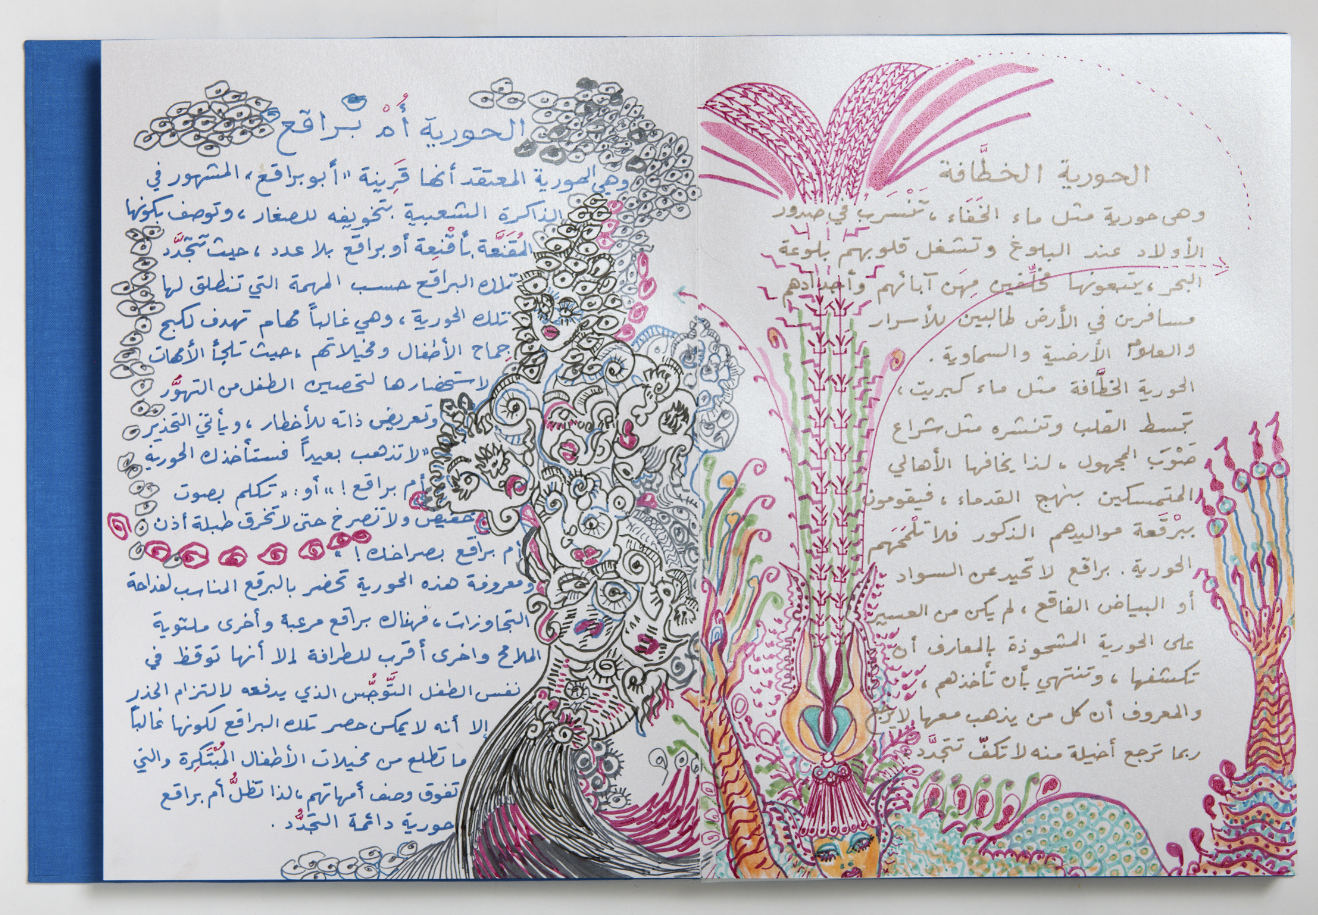 الحورية الخطَّافة
وهى حورية مثل ماء الخَفَاء ، تَنْسَرب في صدور
الأولاد عند البلوغ وتشغل قلوبهم بلوعة
البحر ، يتبعونها مُخَلِّفين مِهَن آبائهم وأجدادهم
مسافرين في الأرض طالبين للأسرار
والعلوم الأرضية والسماوية .
الحورية الخطَّافة مثل ماء كبريت ،
تبسط القلب وتنشره مثل شراع
صَوْبَ المجهول ، لذا يخافها الأهالي
المتمسكين بنهج القدماء ، فيقومون
ببَرْقَعة مواليدهم الذكور فلا تلْمَحَهم
الحورية . براقع لا تحيد عن السواد
أو البياض الفاقع ، لم يكن من العسير
على الحورية المشحوذة بالمعارف أن
تكتشفها ، وتنتهي بأن تأخذهم ،
والمعروف أن كل من يذهب معها لا يرجع
ربما ترجع أخيلة منه لا تكفّ تتجدَّد
الحورية أُمْ براقع
وهي الحورية المعتقد أنها قَرِينة "أبو براقع" المشهور في
الذاكرة الشعبية بتخويفه للصغار ، وتوصف بكونها
المُقَنَّعة بأقْنِعة أو براقع بلا عدد ، حيث تتجَدَّد
تلك البراقع حسب المهمة التي تنطلق لها
تلك الحورية ، وهي غالباً مهام تهدف لكبح
جماح الأطفال ومخيلاتهم ، حيث تلجأ الأمهات
لاستحضارها لتحصين الطفل من التهوُّر
وتعريض ذاته للأخطار ، ويأتي التحذير
"لا تذهب بعيداً فستأخذك الحورية
أم براقع !" أو : "تكلم بصوت
خفيض ولا تصرخ حتى لا تخرق طبلة أذن
أم براقع بصراخك ! "
ومعروفة هذه الحورية تحضر بالبرقع المناسب لفداحة
التجاوزات ، فهناك براقع مرعبة وأخرى ملتوية
الملامح وأخرى أقرب للطرافة إلا أنها توقظ في
نفس الطفل التَّوجُّس الذي يدفعه لالتزام الحذر
إلا أنه لا يمكن حصر تلك البراقع لكونها غالباً
ما تطلع من مخيلات الأطفال المُبْتَكِرة والتي
تفوق وصف أمهاتهم ، لذا تظلُّ أم براقع
حورية دائمة التجدُّد .